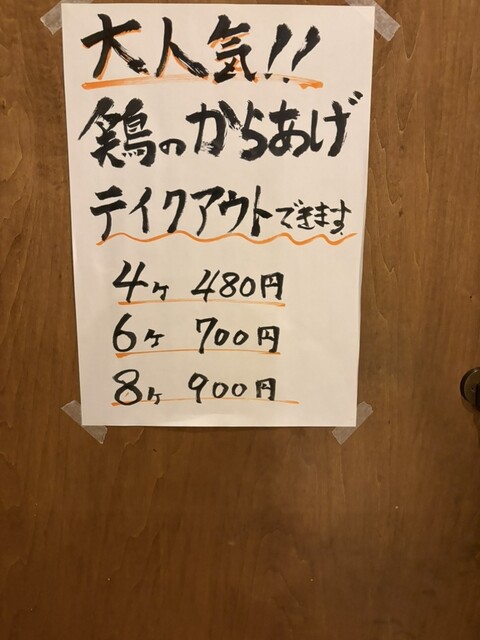 大人気!!
鶏のからあげ
テイクアウトできます。
4ヶ 480円
6ヶ 700円
8ヶ 900円